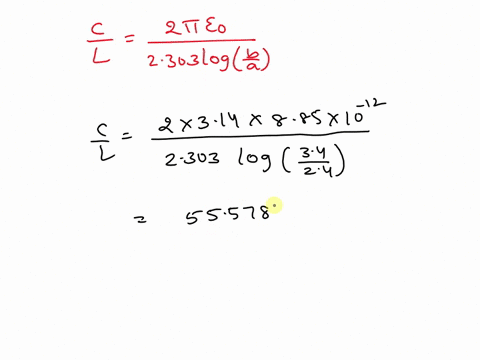 C/L = 2πε0 / 2.303 log(b/a)
C/L = 2 × 3.14 × 8.85 × 10^-12 / 2.303 log (3.4/2.4)
= 55.578